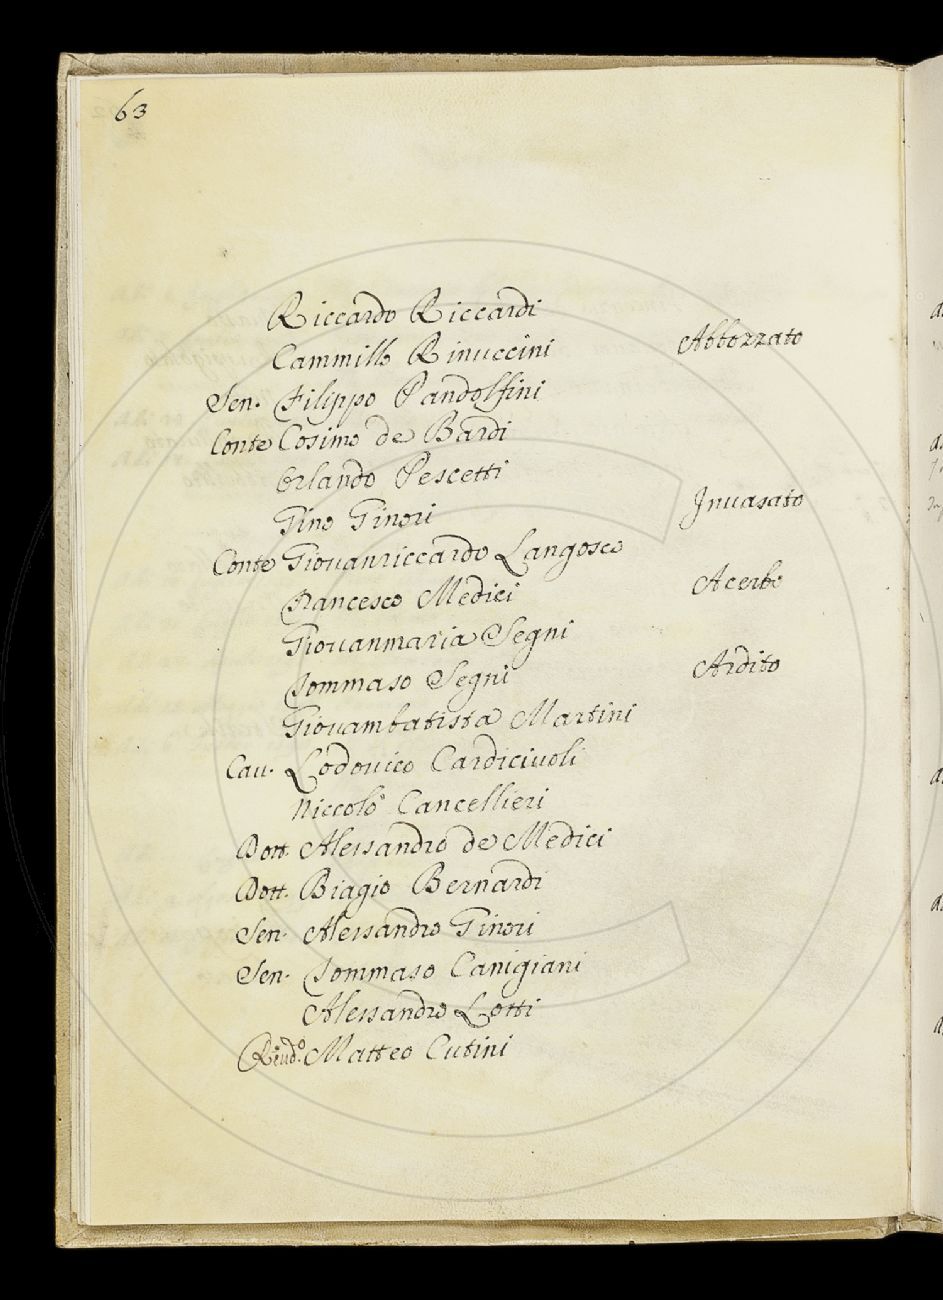 63
Riccardo Riccardi
Cammillo Rinuccini Abbozzato
Sen. Filippo Pandolfini
Conte Cosimo de Bardi
Orlando Pescetti
Gino Ginori Inuasato
Conte Giouanriccardo Langosco
Francesco Medici Acerbo
Giouanmaria Segni
Tommaso Segni Ardito
Giouambatista Martini
Cau. Lodouico Cardiciuoli
Niccolò Cancellieri
Dott. Alessandro de Medici
Dott. Biagio Bernardi
Sen. Alessandro Ginori
Sen. Tommaso Canigiani
Alessandro Lotti
Reud.º Matteo Cutini